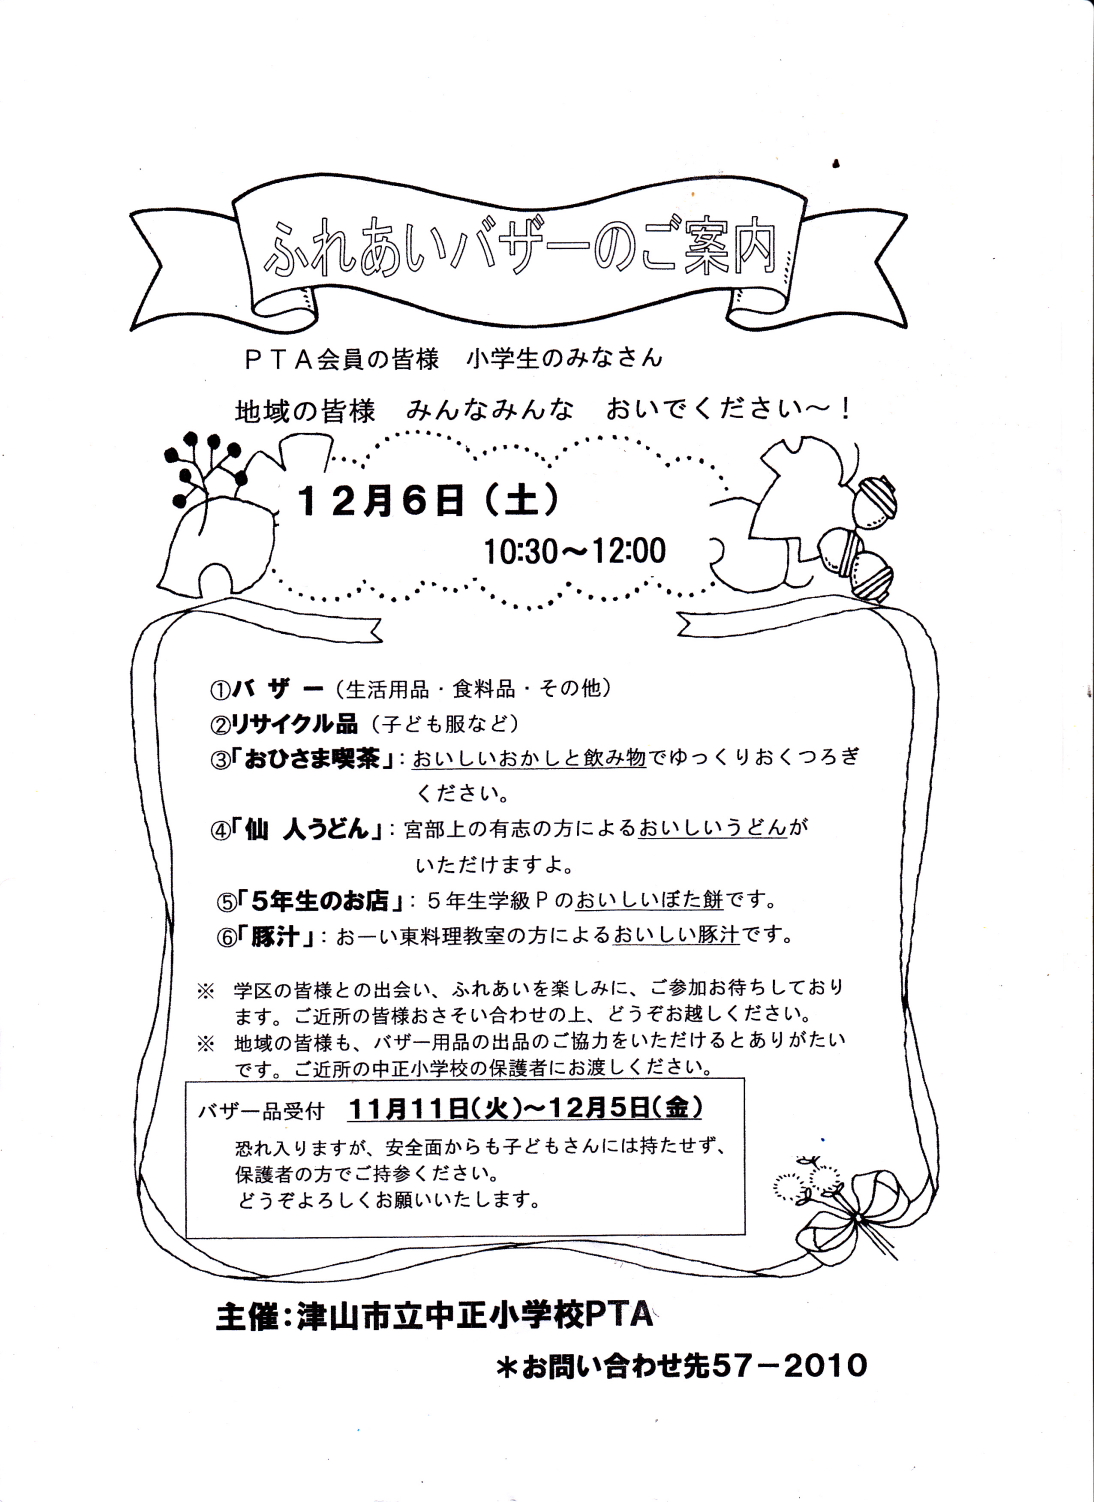 ふれあいバザーのご案内
ＰＴＡ会員の皆様　小学生のみなさん
地域の皆様　みんなみんな　おいでください～！
１２月６日（土）
10:30～12:00
①バ ザ ー（生活用品・食料品・その他）
②リサイクル品（子ども服など）
③「おひさま喫茶」：おいしいおかしと飲み物でゆっくりおくつろぎ
ください。
④「仙 人うどん」：宮部上の有志の方によるおいしいうどんが
いただけますよ。
⑤「５年生のお店」：５年生学級Ｐのおいしいぼた餅です。
⑥「豚汁」：おーい東料理教室の方によるおいしい豚汁です。
※　学区の皆様との出会い、ふれあいを楽しみに、ご参加お待ちしており
ます。ご近所の皆様おさそい合わせの上、どうぞお越しください。
※　地域の皆様も、バザー用品の出品のご協力をいただけるとありがたい
です。ご近所の中正小学校の保護者にお渡しください。
バザー品受付　11月11日(火)～12月5日(金)
恐れ入りますが、安全面からも子どもさんには持たせず、
保護者の方でご持参ください。
どうぞよろしくお願いいたします。
主催：津山市立中正小学校PTA
＊お問い合わせ先57－2010